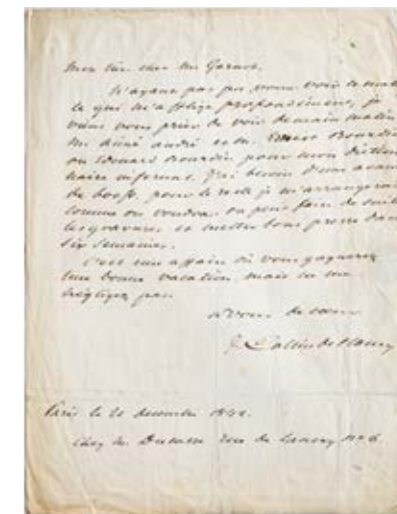 Mon très cher Mr Garnot,
N'ayant pas pu vous voir ce matin
ce qui m'afflige profondément, je
viens vous prier de voir demain matin
Mr Aimé André et M. Ernest Bourdin
ou Edouard Bourdin pour mon diction
naire infernal. J'ai besoin d'une avance
de 600 f. pour le reste je m'arrangerai
comme on voudra. on peut faire de suite
les gravures et mettre sous presse dans
six semaines.
C'est une affaire où vous gagnerez
une bonne vacation. mais ne me
négligez pas
à vous de cœur
J. Collin de Plancy
Paris le 21 décembre
chez M. rue de Lancry nº 6.